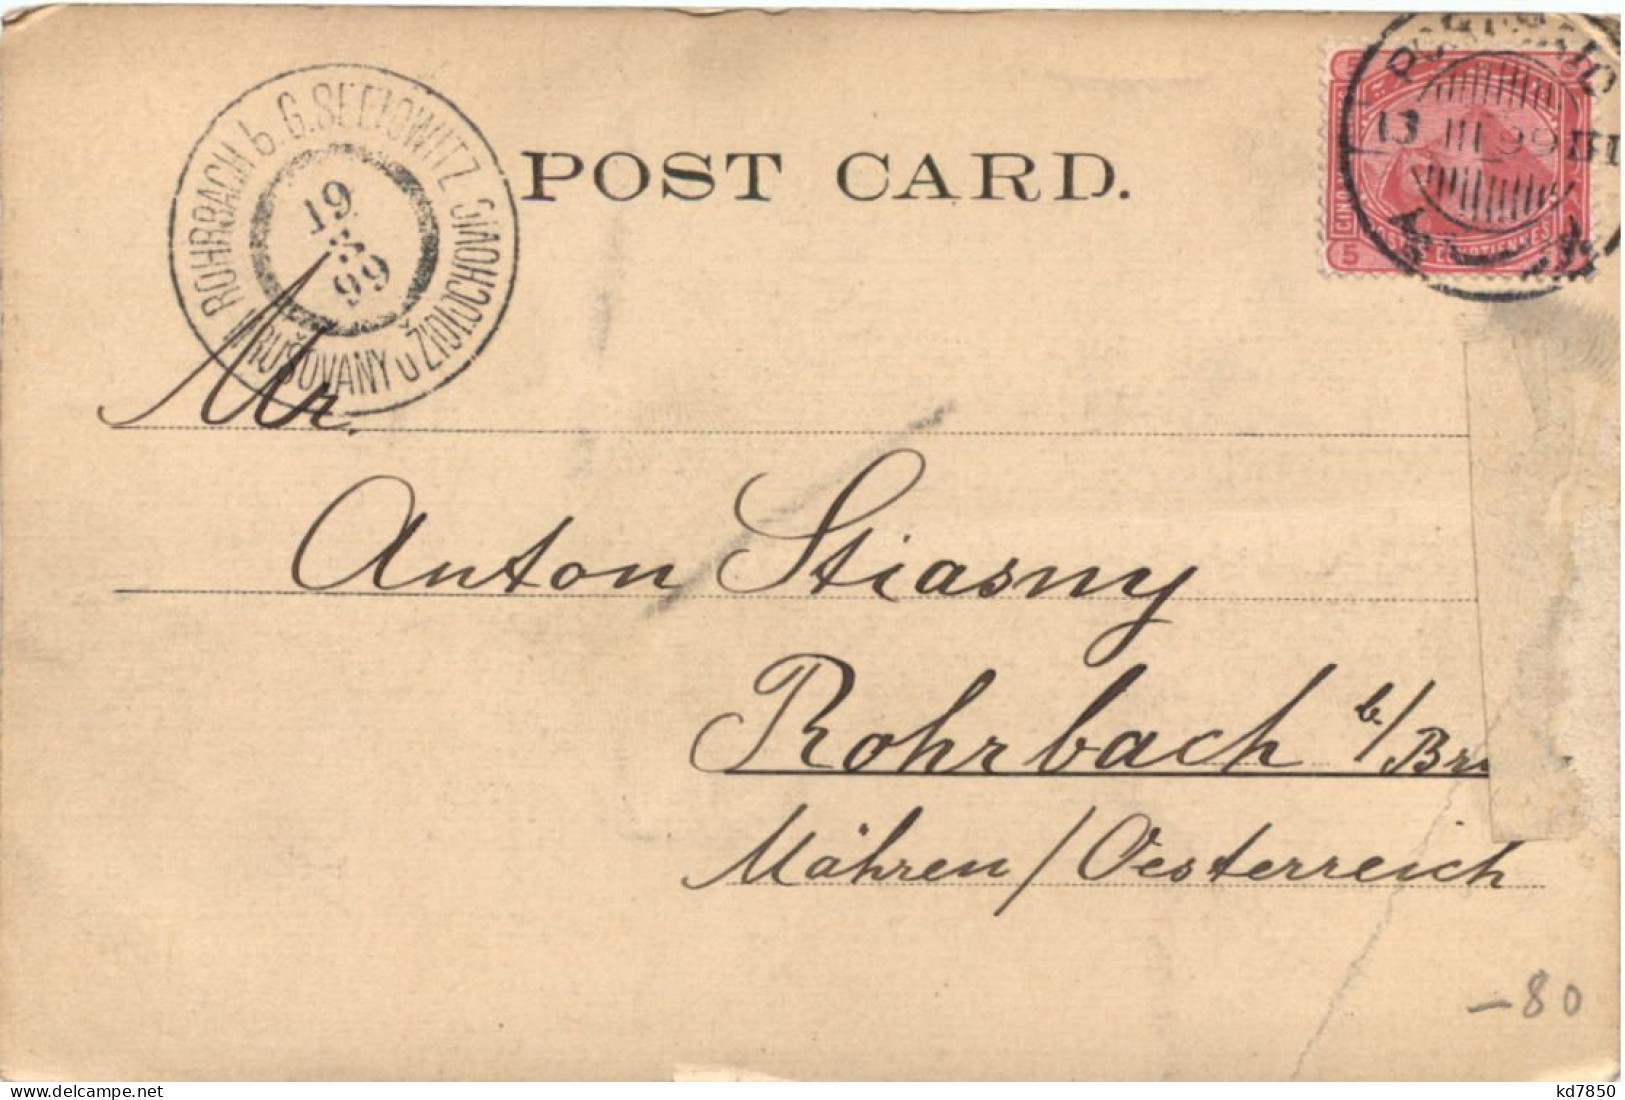 ROHRBACH b. G. SEELOWITZ
VRUŠOVANY u ŽIDLOCHOVIC
19
3
99
POST CARD.
13 III 99
POSTES EGYPTIENNES
CINQ
5
Mr.
Anton Stiasny
Rohrbach b./
Mähren/Oesterreich
-80
kd7850